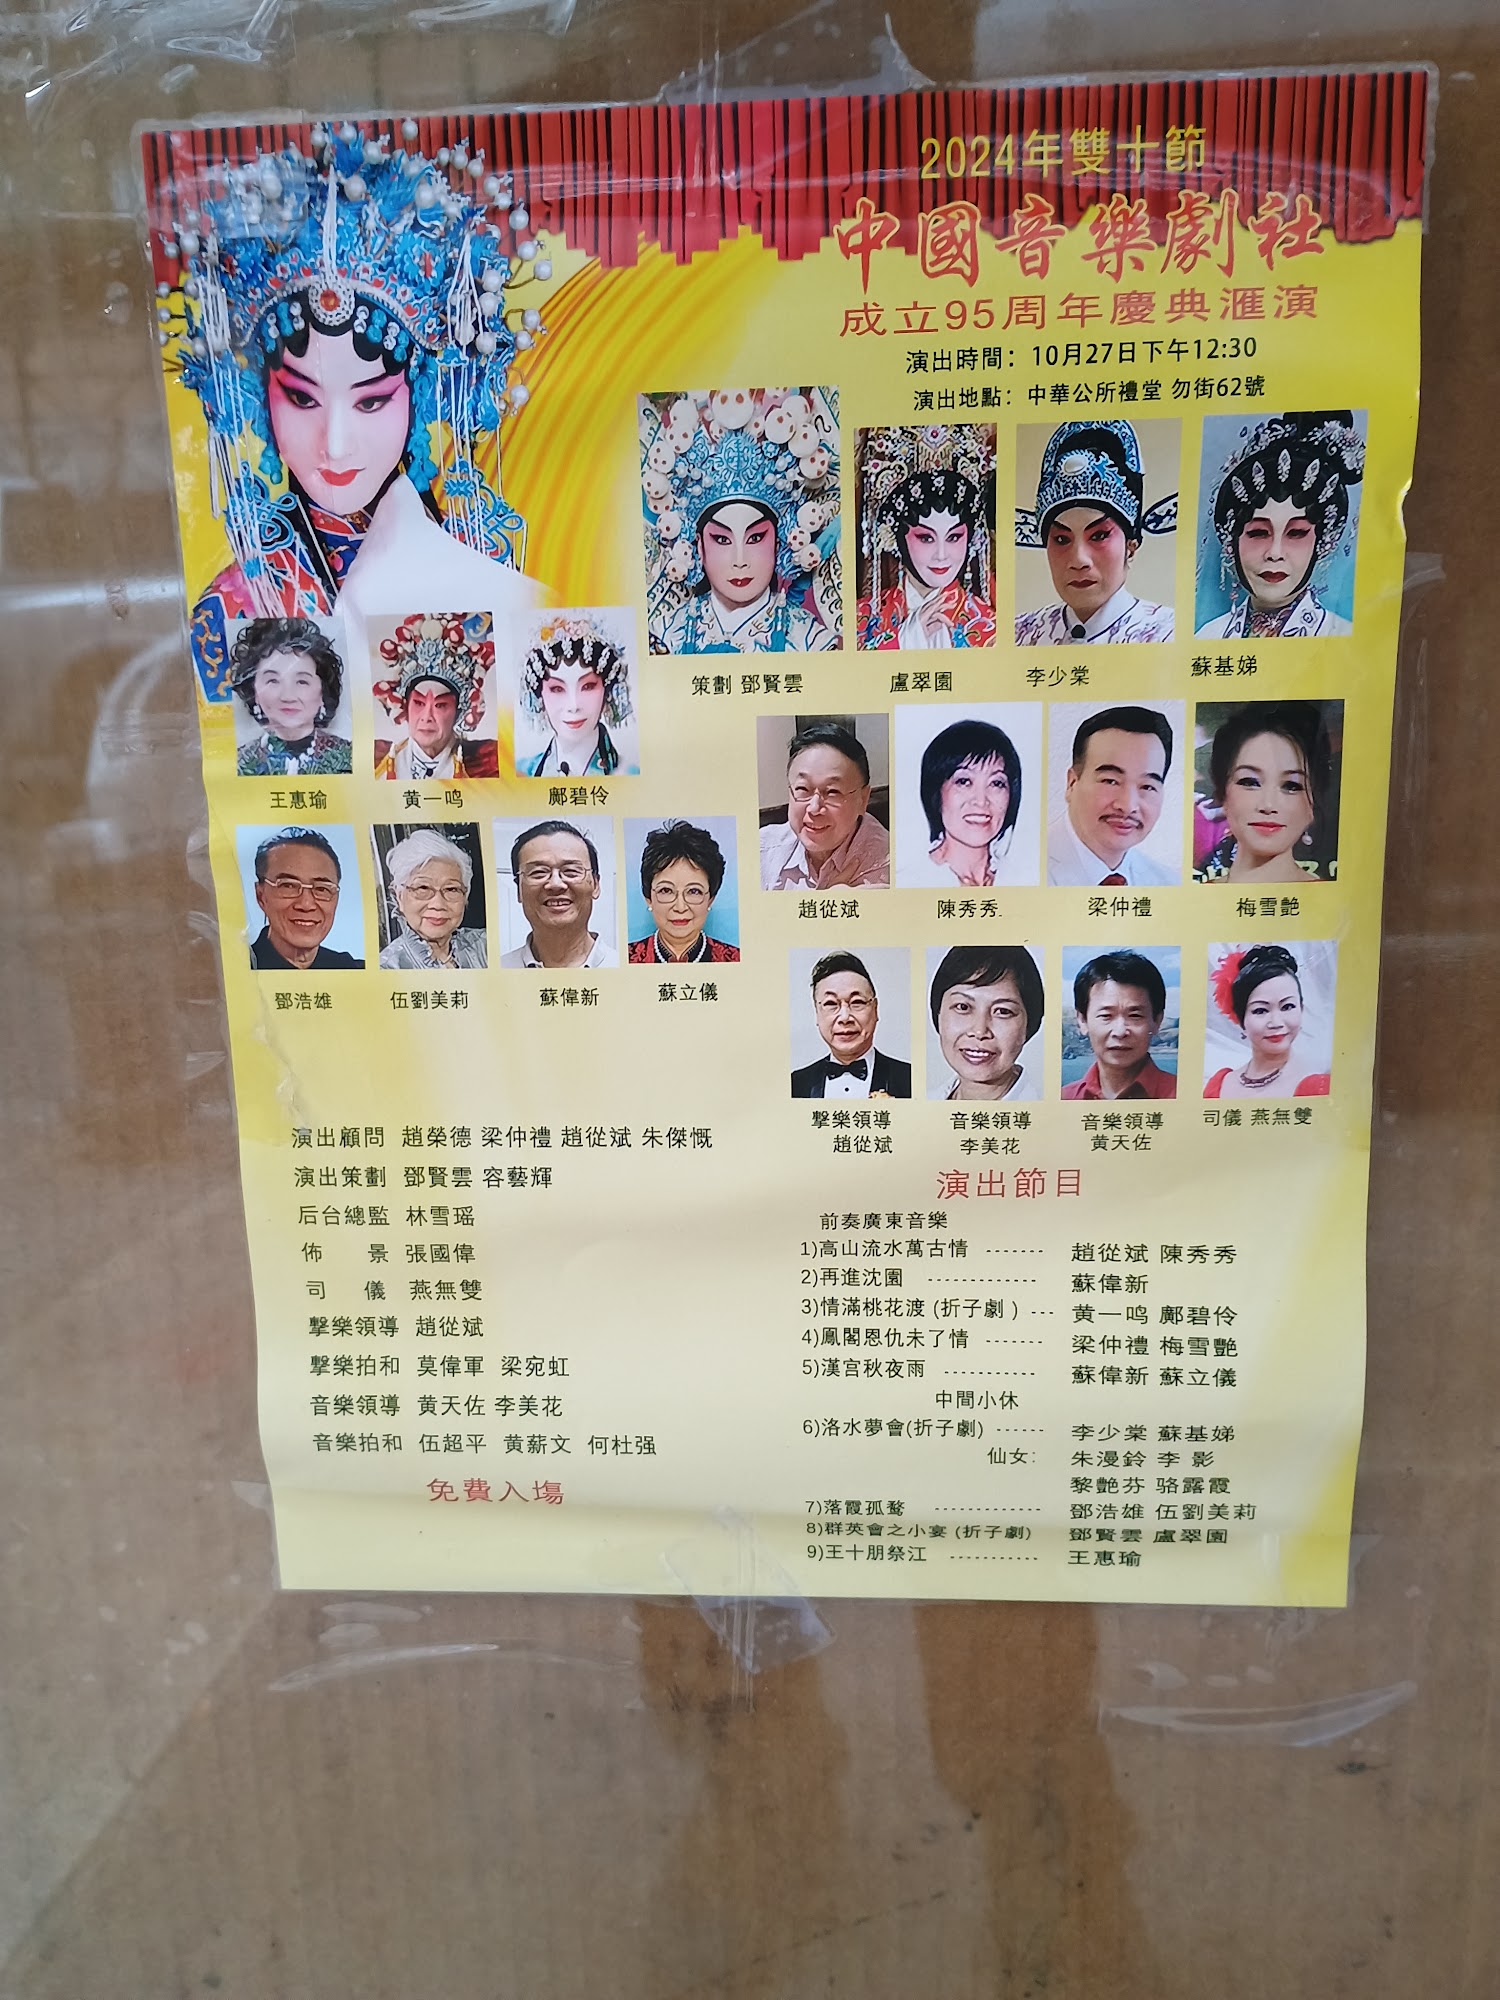 2024年雙十節
中國音樂劇社
成立95周年慶典滙演
演出時間：10月27日下午12:30
演出地點：中華公所禮堂 勿街62號
策劃 鄧賢雲
盧翠園
李少棠
蘇基娣
王惠瑜
黄一鸣
鄺碧伶
趙從斌
陳秀秀
梁仲禮
梅雪艷
鄧浩雄
伍劉美莉
蘇偉新
蘇立儀
擊樂領導
趙從斌
音樂領導
李美花
音樂領導
黄天佐
司儀 燕無雙
演出顧問 趙榮德 梁仲禮 趙從斌 朱傑慨
演出策劃 鄧賢雲 容藝輝
后台總監 林雪瑶
佈 景 張國偉
司 儀 燕無雙
擊樂領導 趙從斌
擊樂拍和 莫偉軍 梁宛虹
音樂領導 黄天佐 李美花
音樂拍和 伍超平 黄薪文 何杜强
免費入塲
演出節目
前奏廣東音樂
1)高山流水萬古情 ------- 趙從斌 陳秀秀
2)再進沈園 ------------- 蘇偉新
3)情滿桃花渡 (折子劇 ) --- 黄一鸣 鄺碧伶
4)鳳閣恩仇未了情 ------- 梁仲禮 梅雪艷
5)漢宫秋夜雨 ----------- 蘇偉新 蘇立儀
中間小休
6)洛水夢會(折子劇) ------ 李少棠 蘇基娣
仙女: 朱漫鈴 李 影
黎艷芬 骆露霞
7)落霞孤鹜 ------------- 鄧浩雄 伍劉美莉
8)群英會之小宴 (折子劇) 鄧賢雲 盧翠園
9)王十朋祭江 ----------- 王惠瑜